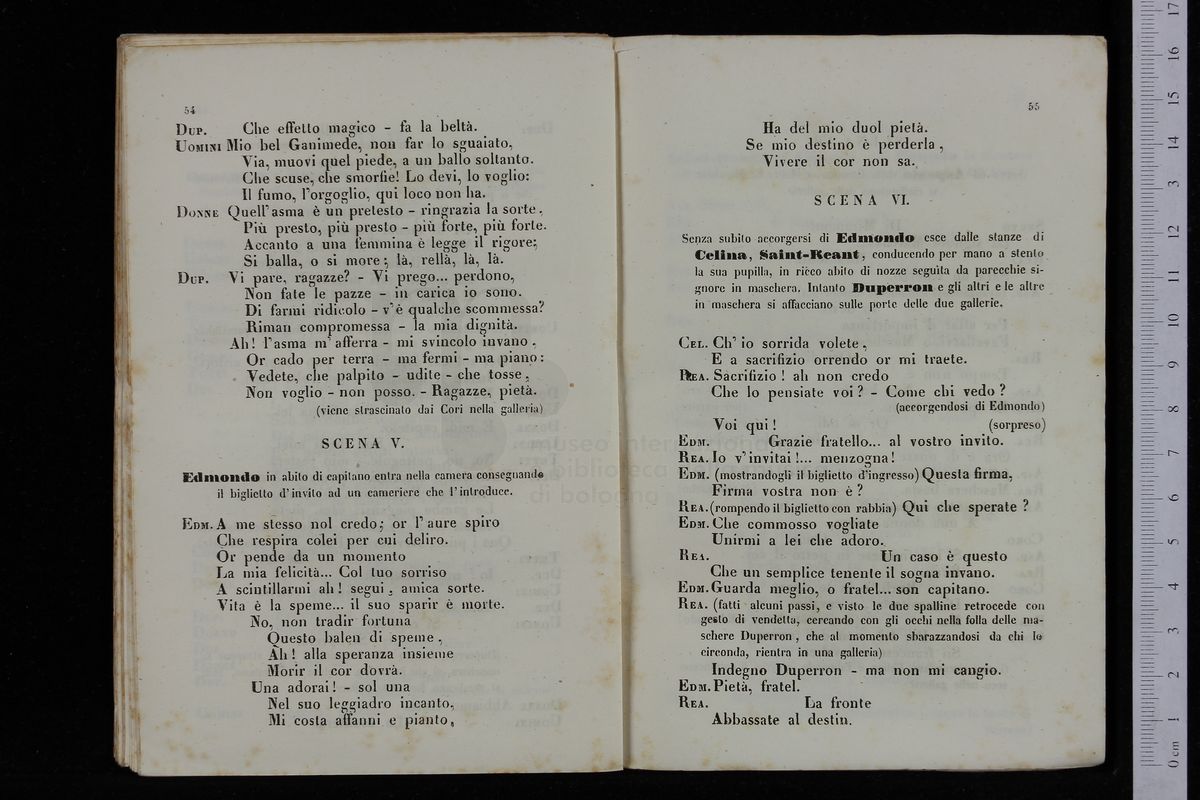 54
Dup. Che effetto magico - fa la beltà.
Uomini Mio bel Ganimede, non far lo sguaiato,
Via, muovi quel piede, a un ballo soltanto.
Che scuse, che smorfie! Lo devi, lo voglio:
Il fumo, l'orgoglio, qui loco non ha.
Donne Quell'asma è un pretesto - ringrazia la sorte,
Più presto, più presto - più forte, più forte.
Accanto a una femmina è legge il rigore;
Si balla, o si more; là, rellà, là, là.
Dup. Vi pare, ragazze? - Vi prego... perdono,
Non fate le pazze - in carica io sono.
Di farmi ridicolo - v'è qualche scommessa?
Riman compromessa - la mia dignità.
Ah! l'asma m'afferra - mi svincolo invano,
Or cado per terra - ma fermi - ma piano:
Vedete, che palpito - udite - che tosse,
Non voglio - non posso. - Ragazze, pietà.
(viene strascinato dai Cori nella galleria)
SCENA V.
Edmondo in abito di capitano entra nella camera consegnando
il biglietto d'invito ad un cameriere che l'introduce.
Edm. A me stesso nol credo; or l'aure spiro
Che respira colei per cui deliro.
Or pende da un momento
La mia felicità... Col tuo sorriso
A scintillarmi ah! segui, amica sorte.
Vita è la speme... il suo sparir è morte.
No, non tradir fortuna
Questo balen di speme,
Ah! alla speranza insieme
Morir il cor dovrà.
Una adorai! - sol una
Nel suo leggiadro incanto,
Mi costa affanni e pianto,
55
Ha del mio duol pietà.
Se mio destino è perderla,
Vivere il cor non sa.
SCENA VI.
Senza subito accorgersi di Edmondo esce dalle stanze di
Celina, Saint-Reant, conducendo per mano a stento
la sua pupilla, in ricco abito di nozze seguita da parecchie si-
gnore in maschera. Intanto Duperron e gli altri e le altre
in maschera si affacciano sulle porte delle due gallerie.
Cel. Ch'io sorrida volete,
E a sacrifizio orrendo or mi traete.
Rea. Sacrifizio! ah non credo
Che lo pensiate voi? - Come chi vedo?
(accorgendosi di Edmondo)
Voi qui! (sorpreso)
Edm. Grazie fratello... al vostro invito.
Rea. Io v'invitai!... menzogna!
Edm. (mostrandogli il biglietto d'ingresso) Questa firma,
Firma vostra non è?
Rea. (rompendo il biglietto con rabbia) Qui che sperate?
Edm. Che commosso vogliate
Unirmi a lei che adoro.
Rea. Un caso è questo
Che un semplice tenente il sogna invano.
Edm. Guarda meglio, o fratel... son capitano.
Rea. (fatti alcuni passi, e visto le due spalline retrocede con
gesto di vendetta, cercando con gli occhi nella folla delle ma-
schere Duperron, che al momento sbarazzandosi da chi lo
circonda, rientra in una galleria)
Indegno Duperron - ma non mi cangio.
Edm. Pietà, fratel.
Rea. La fronte
Abbassate al destin.
museo internazionale
biblioteca
di bologna
0 cm 1 2 3 4 5 6 7 8 9 10 11 12 13 14 15 16 17